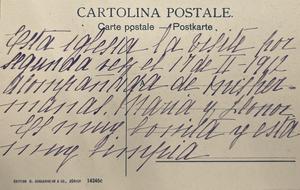 CARTOLINA POSTALE.
Carte postale — Postkarte
Esta iglesia la visité por
segunda vez el 17 de II-1912
acompañada de mis her-
manas. Maria y Leonor
Es muy bonita y esta
muy limpia
EDITION G. GUGGENHEIM & CO., ZÜRICH 14246c